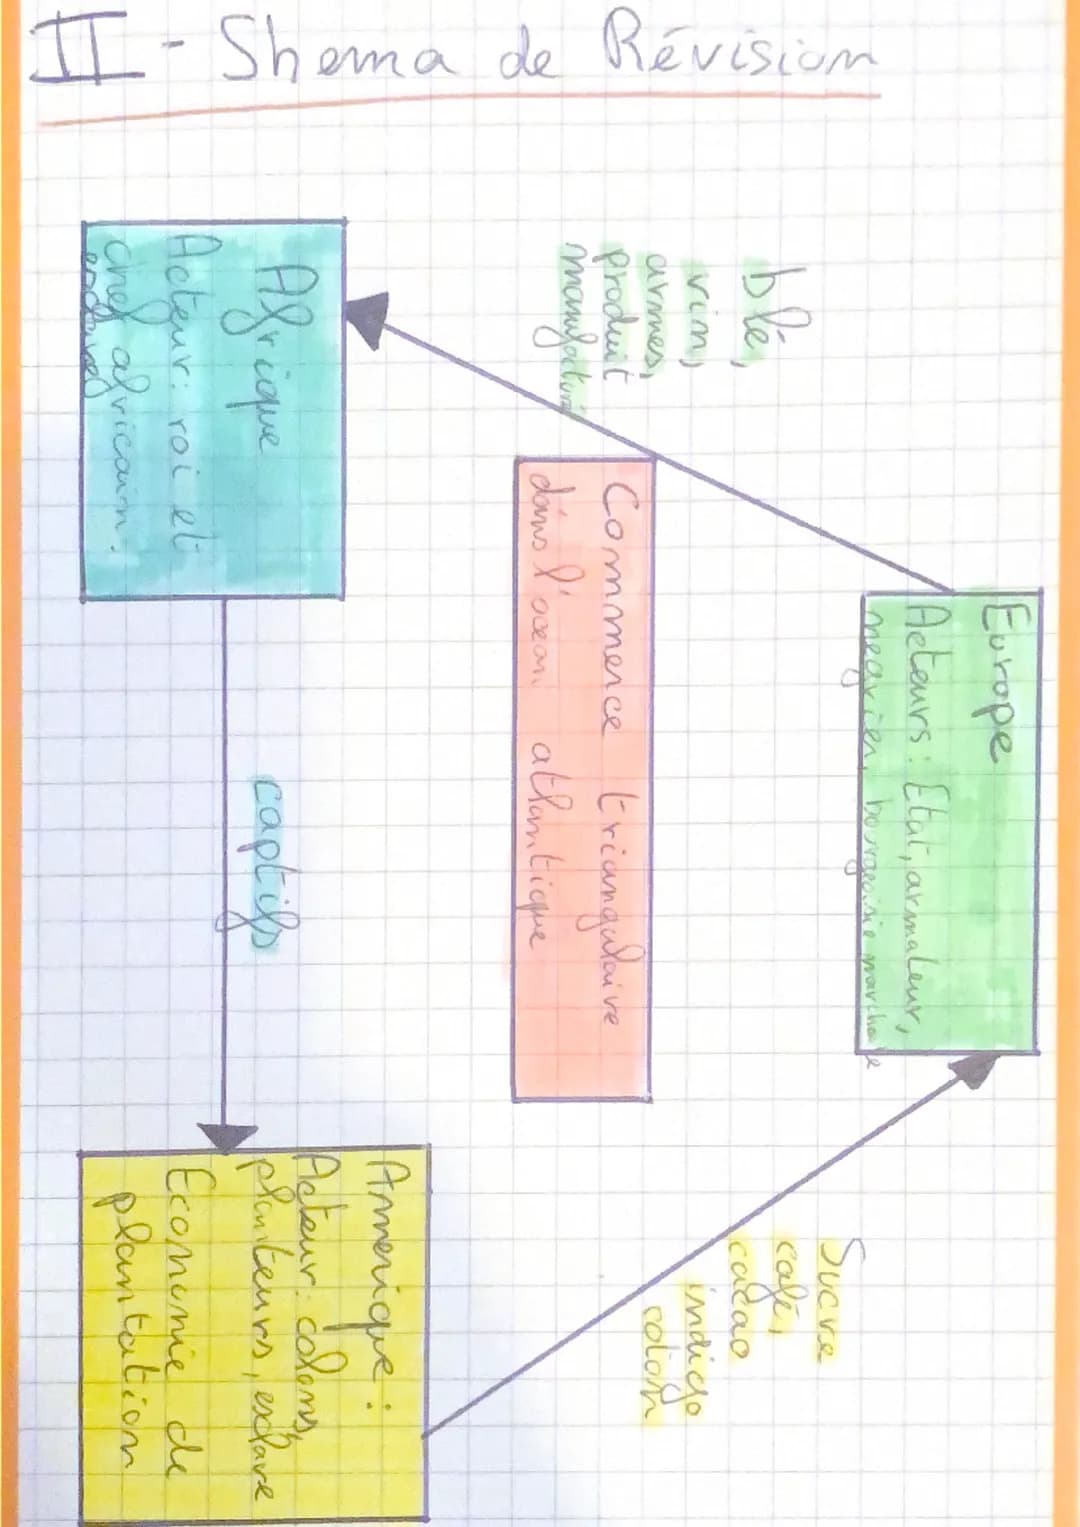 II - Shema de Révision
Europe
Acteurs : Etat, armateur,
negrier, bourgeoisie marchande
blé,
vin,
armes,
produit
manufaturé
Sucre
café,
cacao
indigo
coton
Commerce triangulaire
dans l'océan atlantique
Afrique
Acteur : roi et
chef africain.
captifs
Amerique :
Acteur : colons,
planteurs, esclave
Economie de
plantation